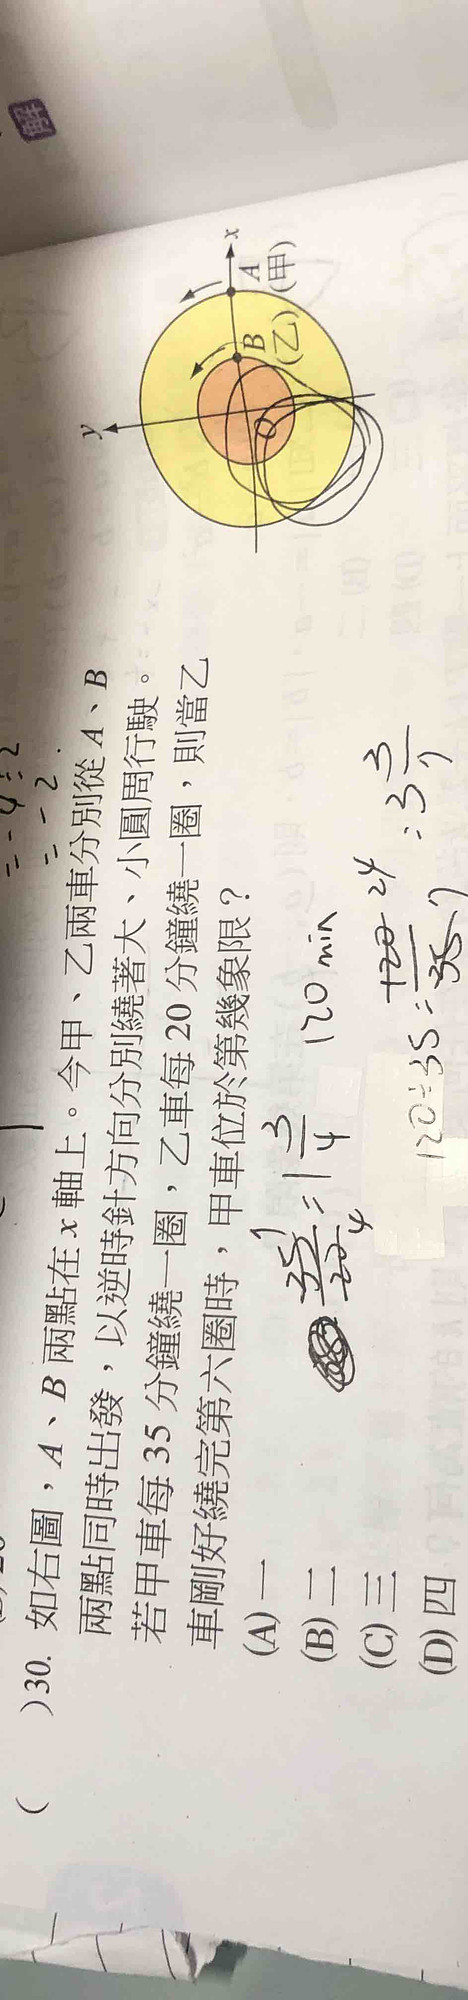 解
= -4÷2
= -2
( )30. 如右圖，A、B 兩點在 x 軸上。今甲、乙兩車分別從 A、B
兩點同時出發，以逆時針方向分別繞著大、小圓周行駛。
若甲車每 35 分鐘繞一圈，乙車每 20 分鐘繞一圈，則當乙
車剛好繞完第六圈時，甲車位於第幾象限？
(A) 一
(B) 二
(C) 三
(D) 四
y
x
A
(甲)
B
(乙)
O
35/20 7/4 = 1 3/4
120 min
120÷35 = 120/35 24/7 = 3 3/7